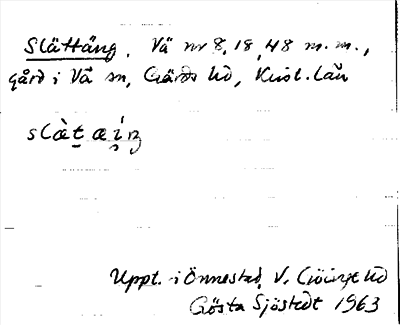 Slättäng. Vä nr 8, 18, 48 m.m.,
gård i Vä sn, Gärds hd, Krist. län
slàt æi̇ŋ
Uppt. i Önnestad, V. Göinge hd
Gösta Sjöstedt 1963